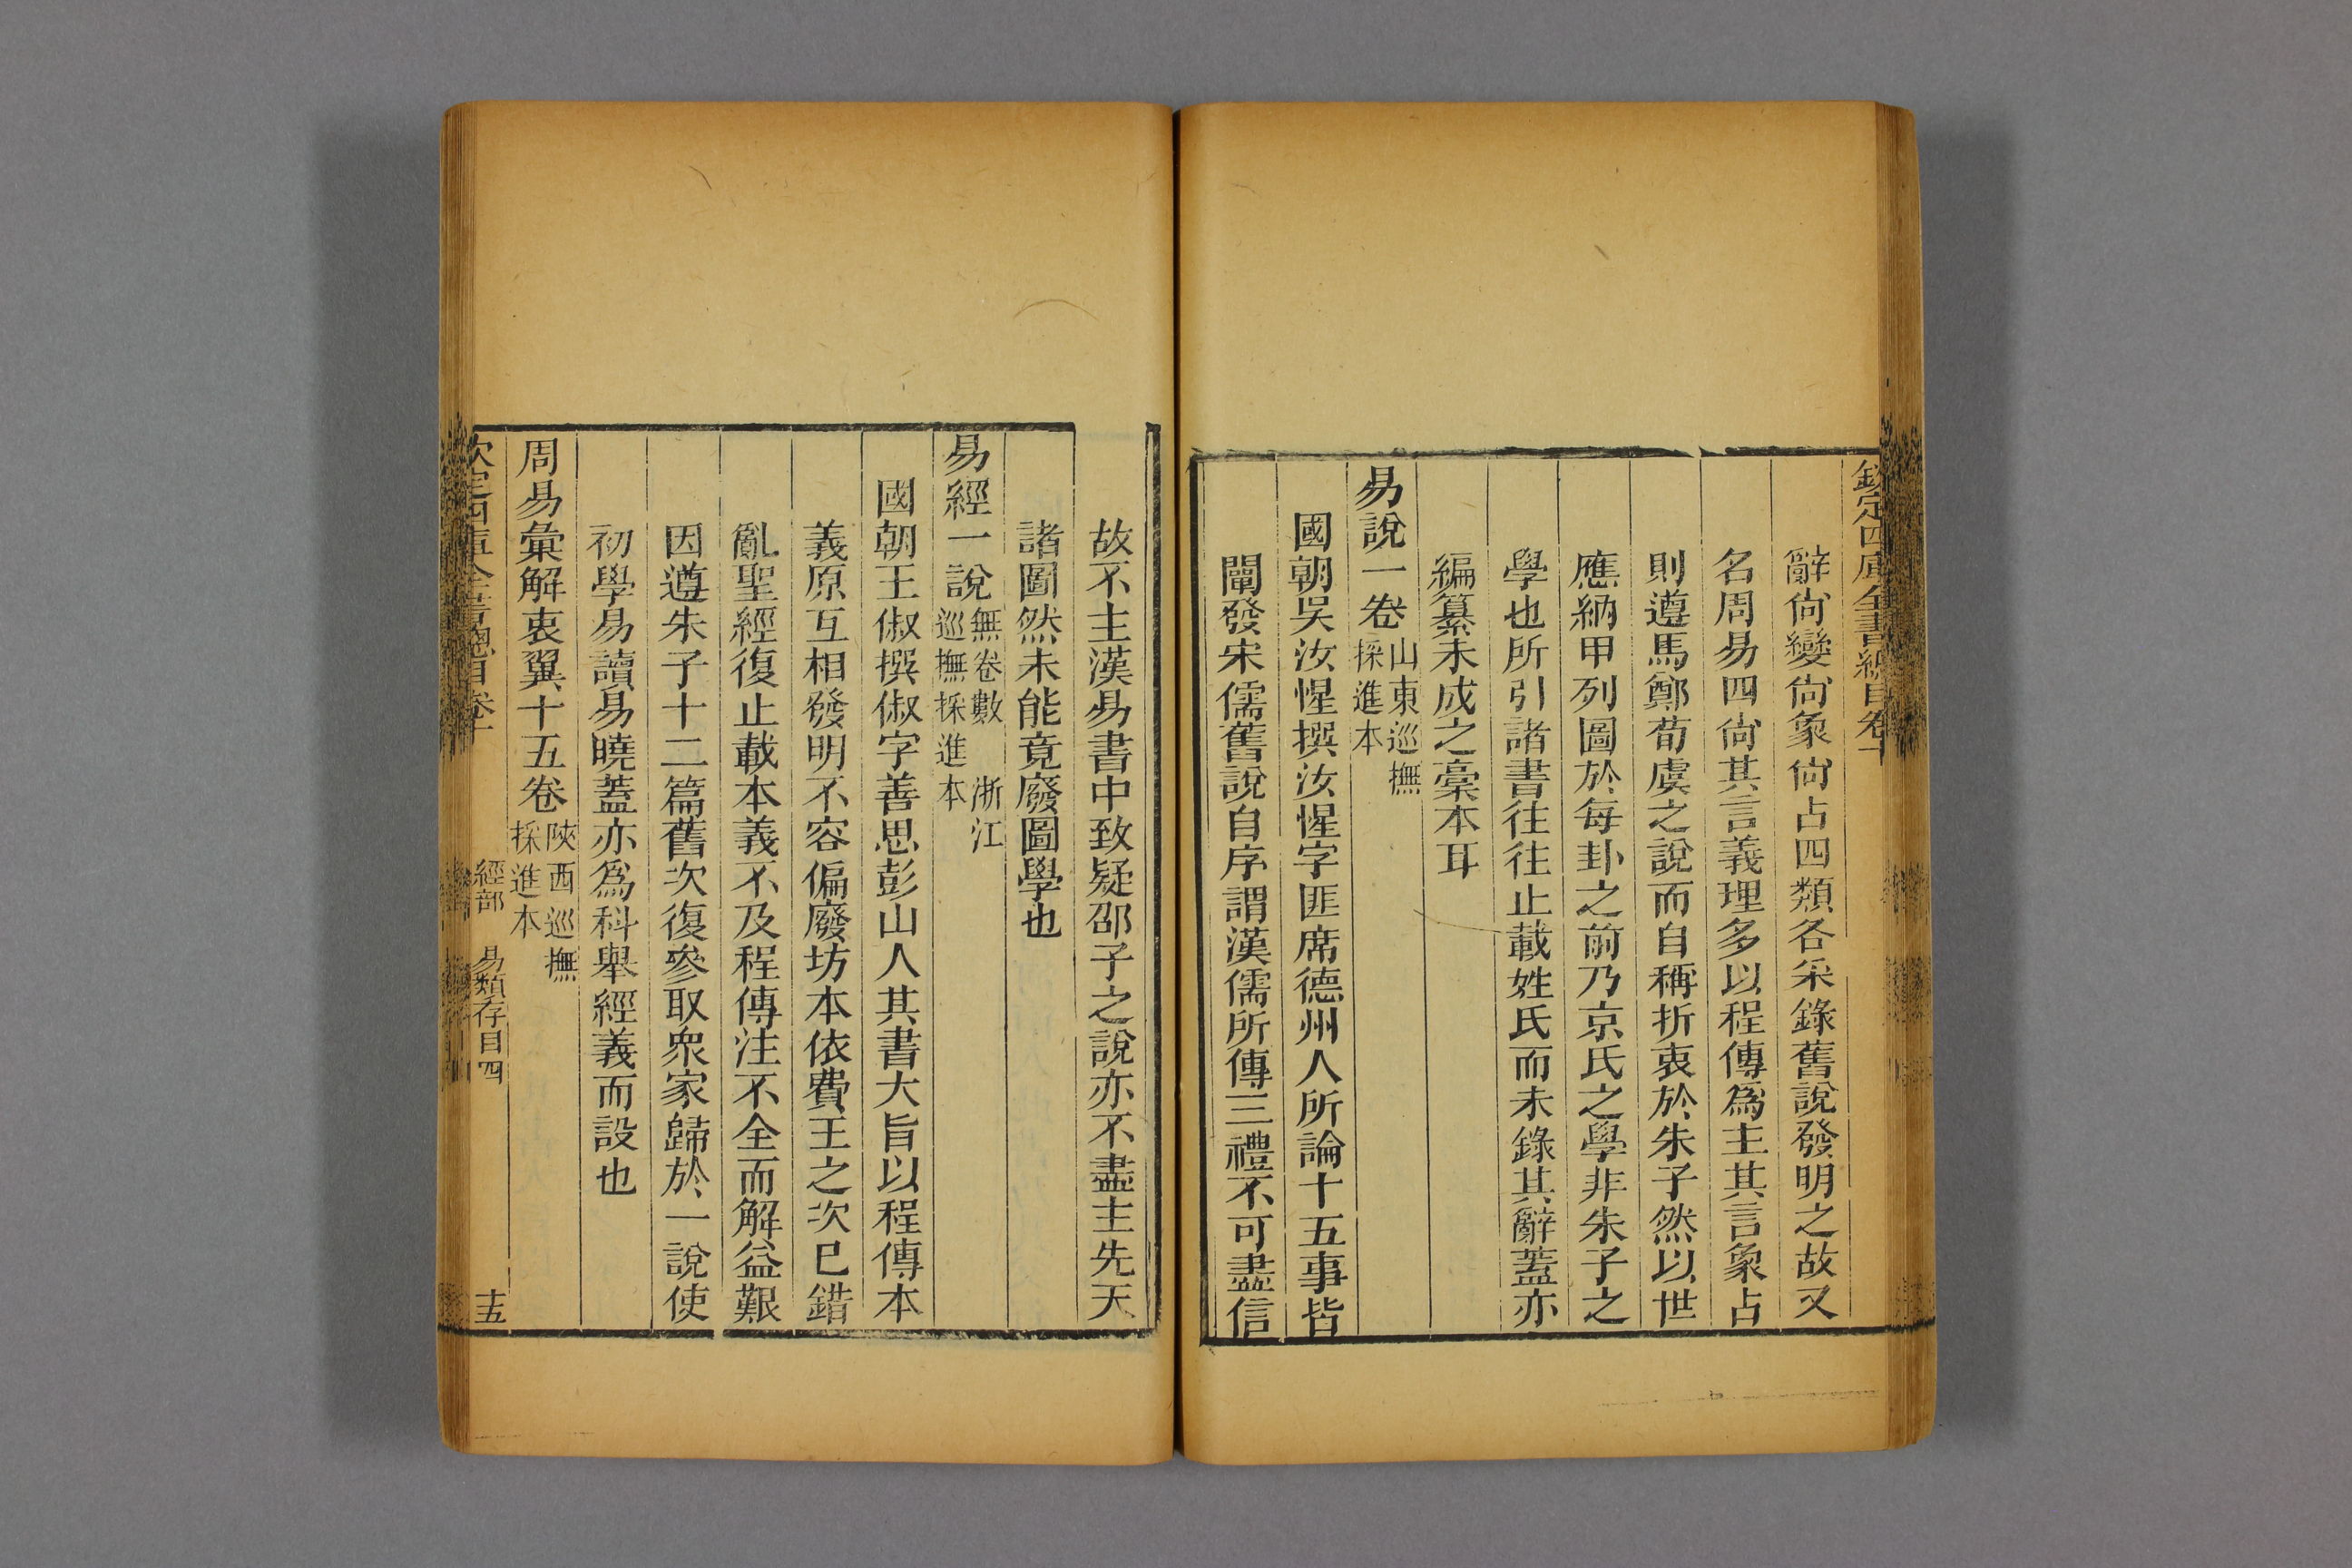 欽定四庫全書總目卷十
辭尙變尙象尙占四類各采錄舊說發明之故又
名周易四尙其言義理多以程傳爲主其言象占
則遵馬鄭荀虞之說而自稱折衷於朱子然以世
應納甲列圖於每卦之前乃京氏之學非朱子之
學也所引諸書往往止載姓氏而未錄其辭蓋亦
編纂未成之稾本耳
易說一卷山東巡撫採進本
國朝吳汝惺撰汝惺字匪席德州人所論十五事皆
闡發宋儒舊說自序謂漢儒所傳三禮不可盡信
故不主漢易書中致疑邵子之說亦不盡主先天
諸圖然未能竟廢圖學也
易經一說無卷數浙江巡撫採進本
國朝王俶撰俶字善思彭山人其書大旨以程傳本
義原互相發明不容偏廢坊本依費王之次已錯
亂聖經復止載本義不及程傳注不全而解益艱
因遵朱子十二篇舊次復參取衆家歸於一說使
初學易讀易曉蓋亦爲科舉經義而設也
周易彙解衷翼十五卷陝西巡撫採進本
欽定四庫全書總目卷十 經部 易類存目四 十五